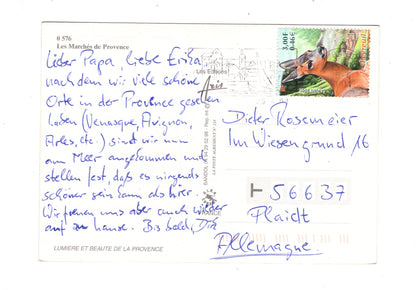 0 576
Les Marchés de Provence
Lieber Papa, liebe Erika,
nachdem wir viele schöne
Orte in der Provence gesehen
haben (Venasque, Avignon,
Arles, etc.) sind wir nun
am Meer angekommen und
stellen fest, daß es nirgends
schöner sein kann als hier.
Wir freuen uns aber auch wieder
auf zu hause. Bis bald,
LUMIERE ET BEAUTE DE LA PROVENCE
3,00F
0,46€
Dieter Rosemeier
Im Wiesengrund 16
T 56637
Plaidt
Allemagne